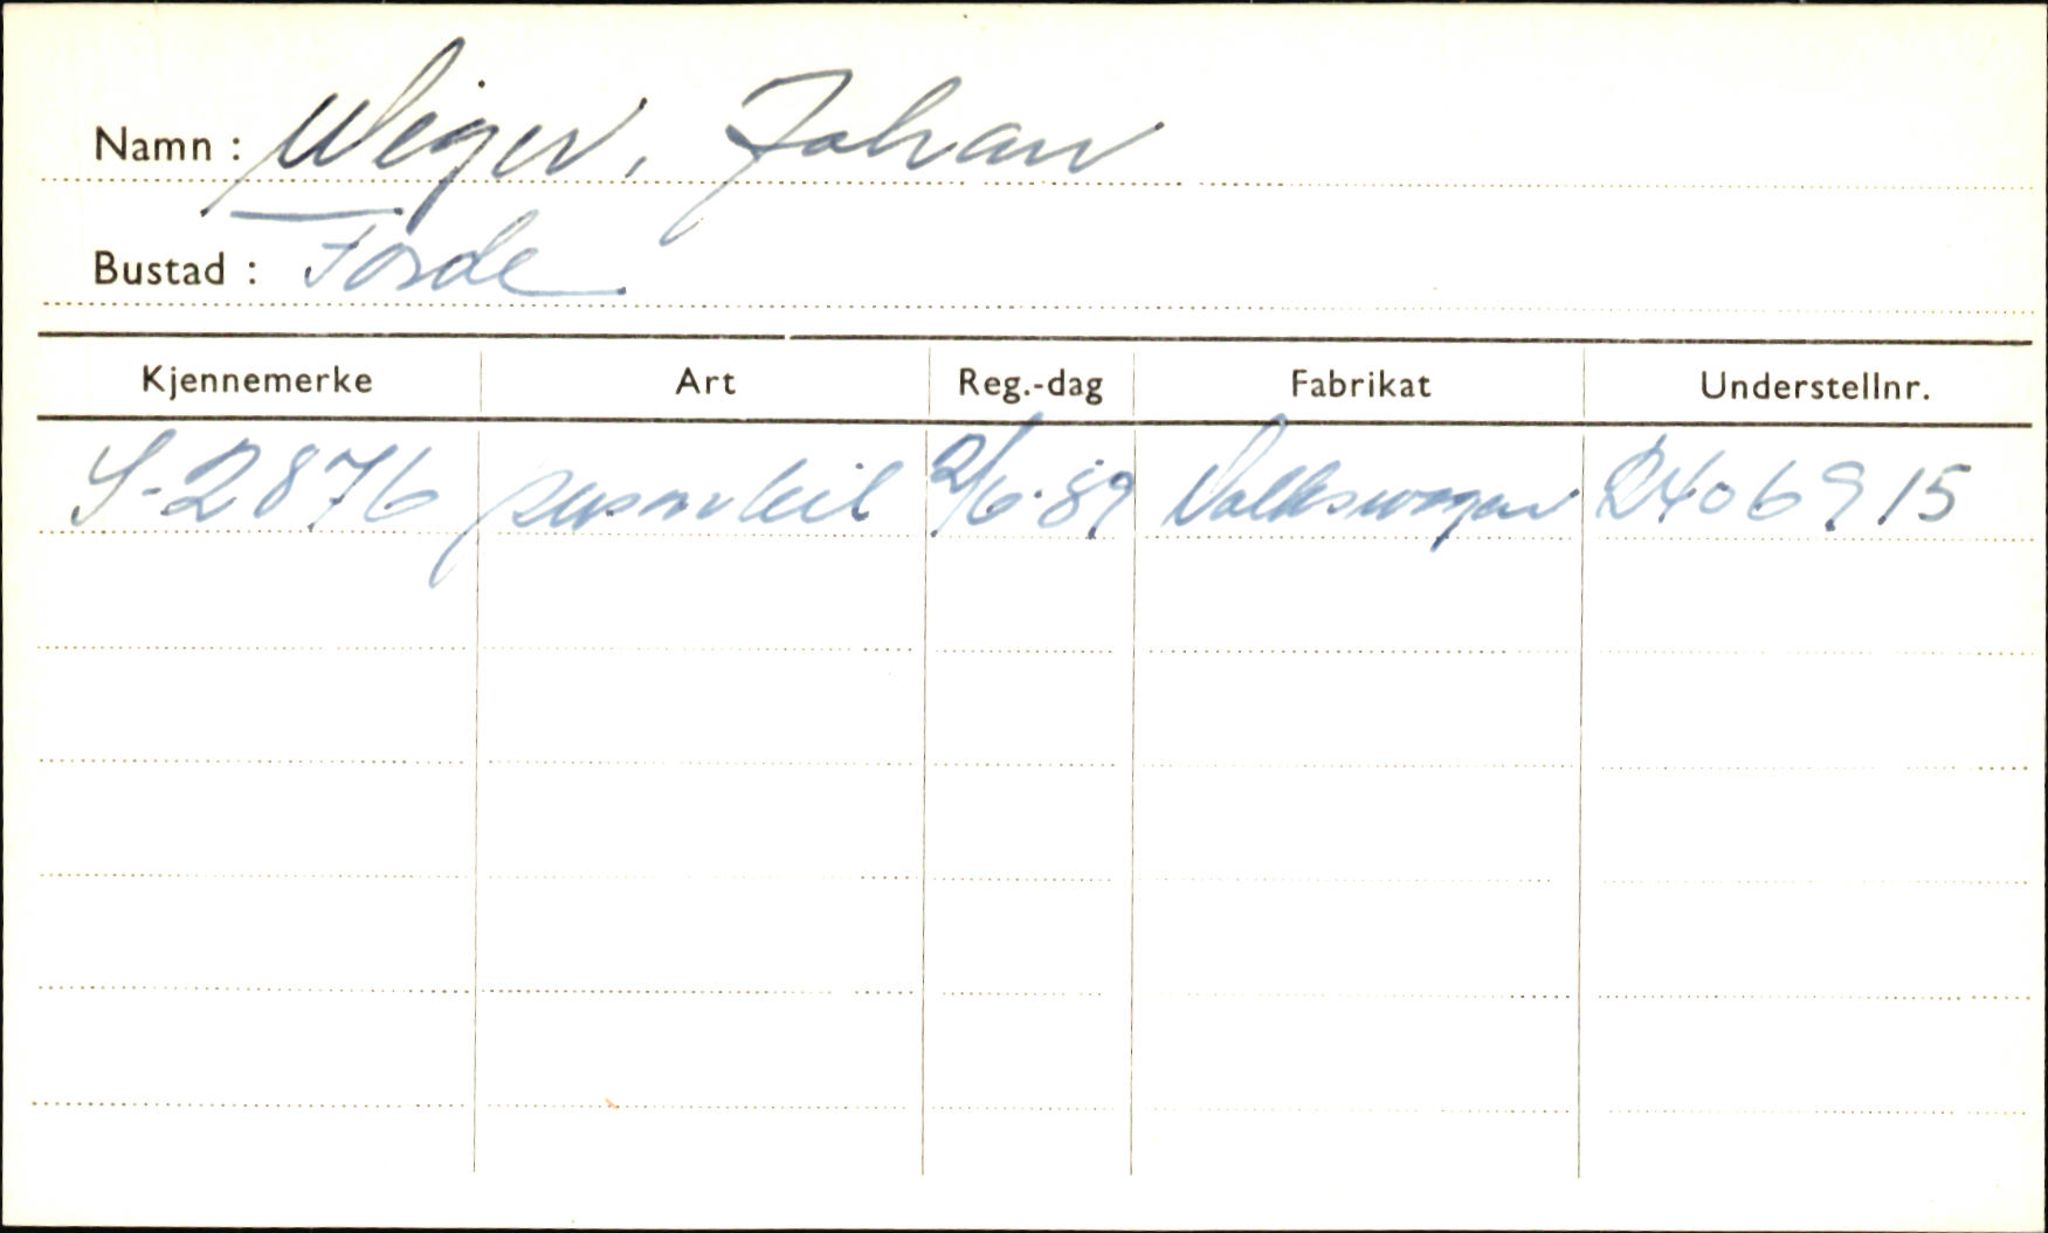 Namn : Meyer, Johan
Bustad : Førde
Kjennemerke Art Reg.-dag Fabrikat Understellnr.
S-2876 personbil 2/6-59 Volkswagen 2406915